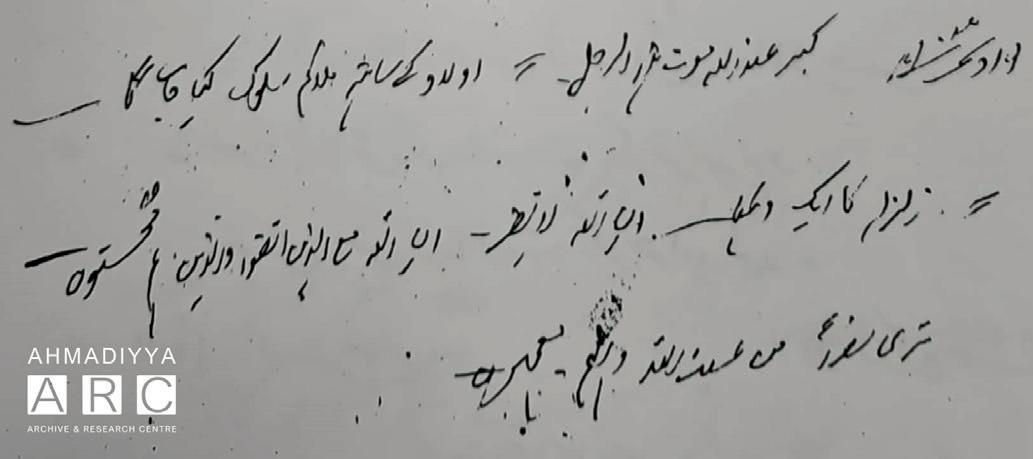 کبر عند اللہ موت ہذا الرجل = اولاد کے ساتھ ملائم سلوک کیا جائے گا
= زلزلہ کا ایک دھکا ان اللہ لا یضر۔ ان اللہ مع الذین اتقوا والذین ہم محسنون
تری نصراً من عند اللہ وہم یعمہون
AHMADIYYA
ARC
ARCHIVE & RESEARCH CENTRE